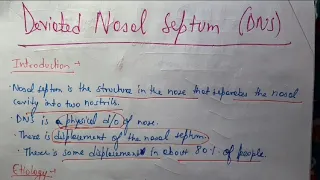 Deviated Nasal Septum (DNS)
Introduction →
• Nasal septum is the structure in the nose that separates the nasal
cavity into two nostrils.
• DNS is a physical d/o of nose.
• There is displacement of the nasal septum.
• There is some displacement in about 80% of people.
Etiology →